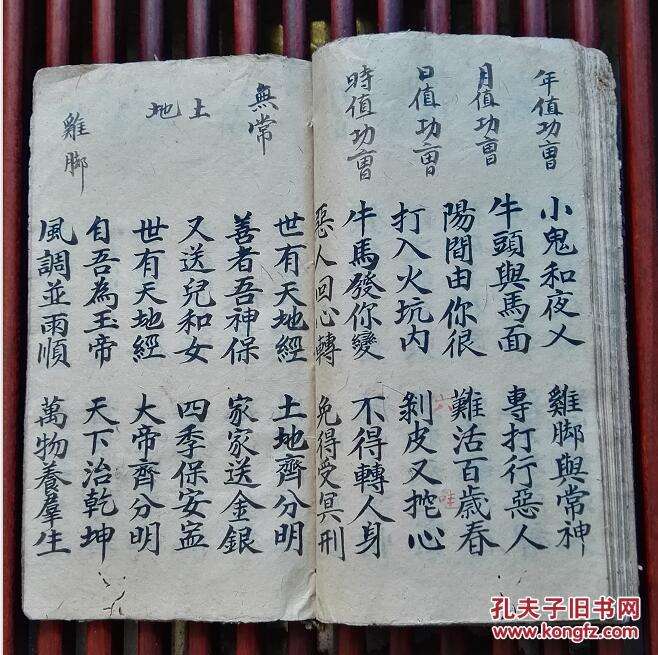 年值功曹
月值功曹
日值功曹
時值功曹
小鬼和夜乂 雞脚與常神
牛頭與馬面 專打行惡人
陽間由你很 難活百歲春
打入火坑内 剝皮又挖心
牛馬發你變 不得轉人身
惡人回心轉 免得受冥刑
無常
土地
雞脚
世有天地經 土地齊分明
善者吾神保 家家送金銀
又送兒和女 四季保安寍
世有天地經 大帝齊分明
自吾為玉帝 天下治乾坤
風調並雨順 萬物養羣生
孔夫子旧书网
www.kongfz.com